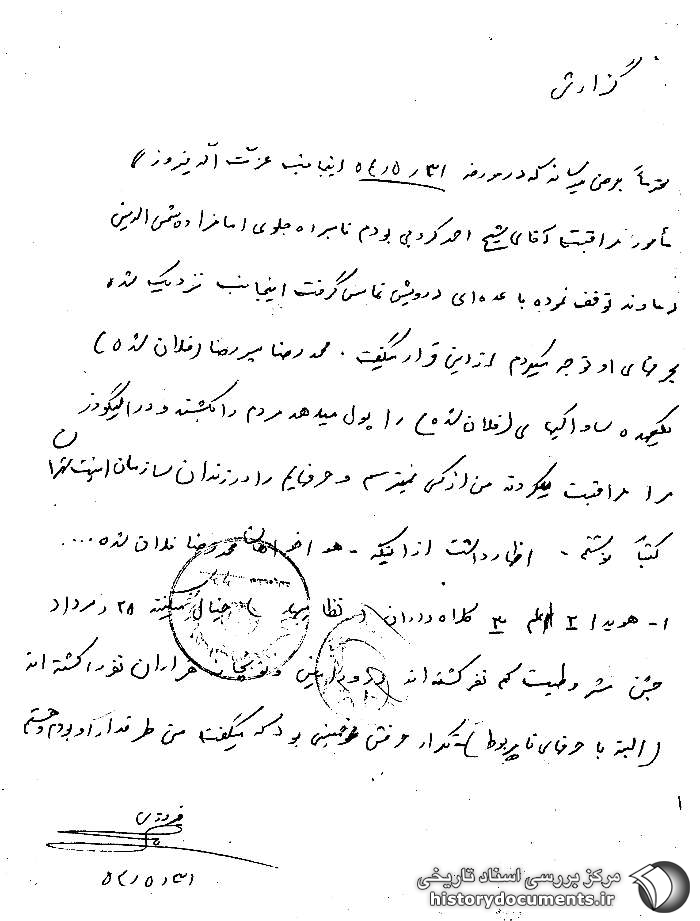 گزارش
محترماً بعرض میرساند که در مورخه ۳۱ ر ۵ ر ۵۴ اینجانب عزت اله فیروز
مأمور مراقبت آقای شیخ احمد کروبی بودم نامبرده جلوی امامزاده شمس الدین
توقف نموده با عده‌ای درویش تماس گرفت اینجانب نزدیک شده
بحرفهای او توجه میکردم از این قرار میگفت . محمد رضا میر رضا (فلان شده)
ساواکیهای (فلان شده) را پول میدهد مردم را بکشند و در الیگودرز
مرا مراقبت میکردند من از کسی نمیترسم و حرفهایم را در زندان سازمان امنیت تهران
کتباً نوشتم - اظهار داشت از اینکه - محمد رضا فلان شده ....
۱- هویدا ۲ علم ۳ کلاه ۲۸ مرداد
جشن مشروطیت کم نفر کشته‌اند هزاران نفر را کشته اند
(البته با حرفهای نامربوط) - تکرار حرفش خمینی بود که میگفت من طرفدار او بودم و هستم
۱
۳۱ ر ۵ ر ۵۴
مرکز بررسی اسناد تاریخی
historydocuments.ir